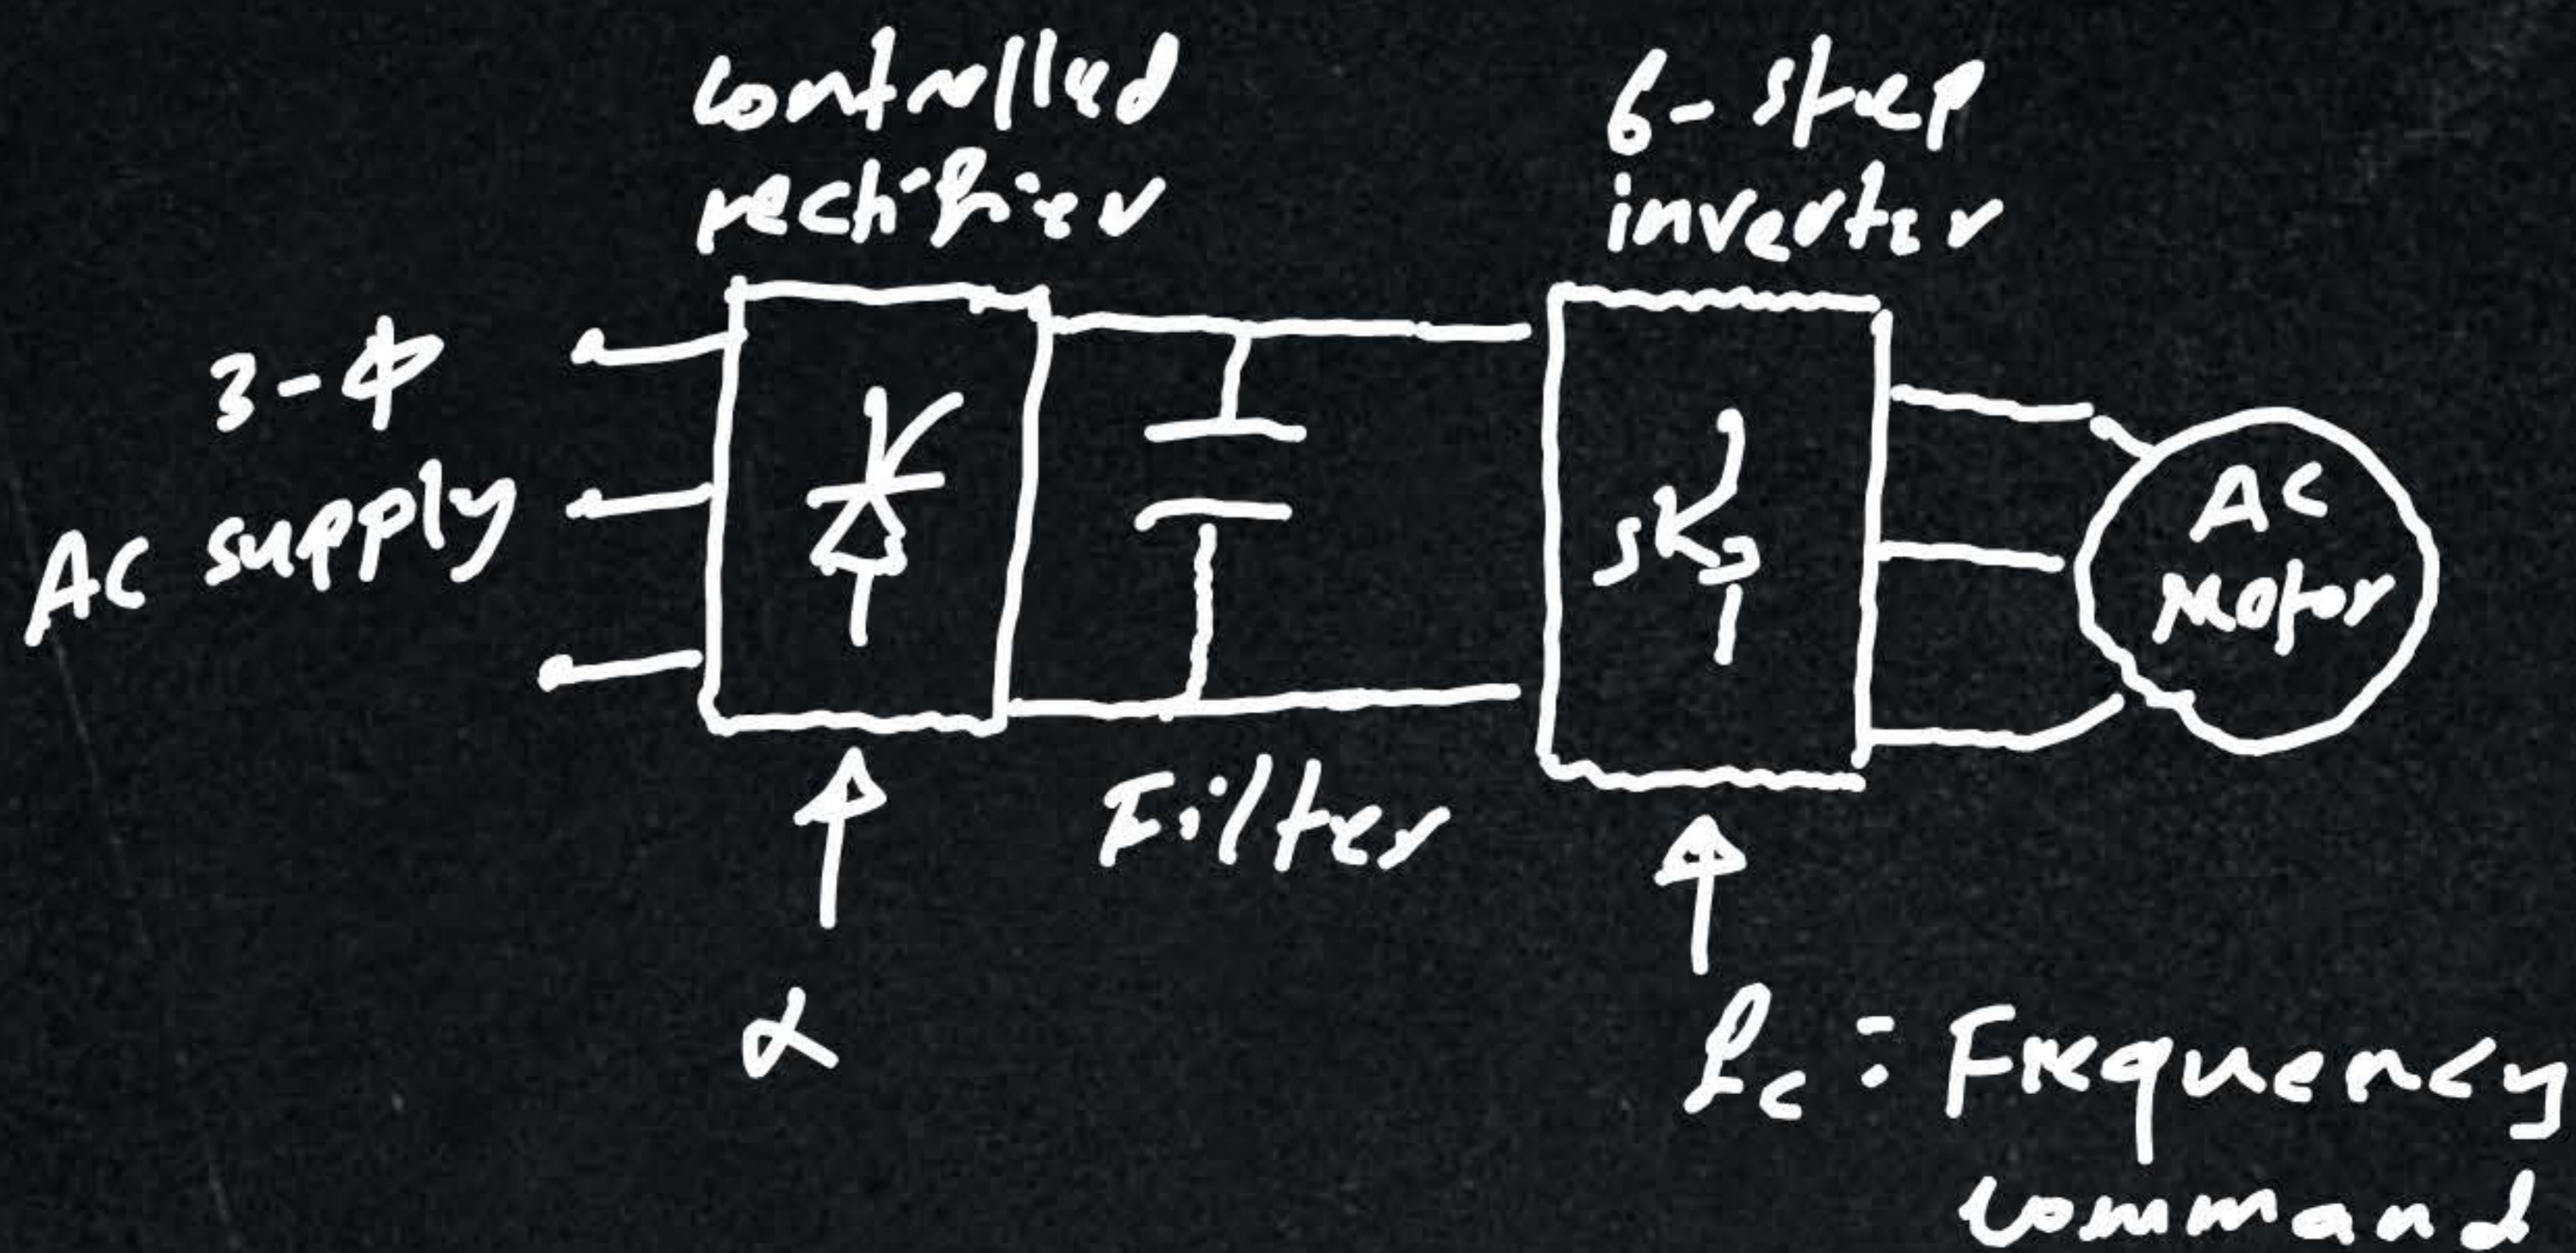 controlled
rectifier
6-step
inverter
3-Φ
AC supply
AC
Motor
Filter
α
fc : Frequency
command